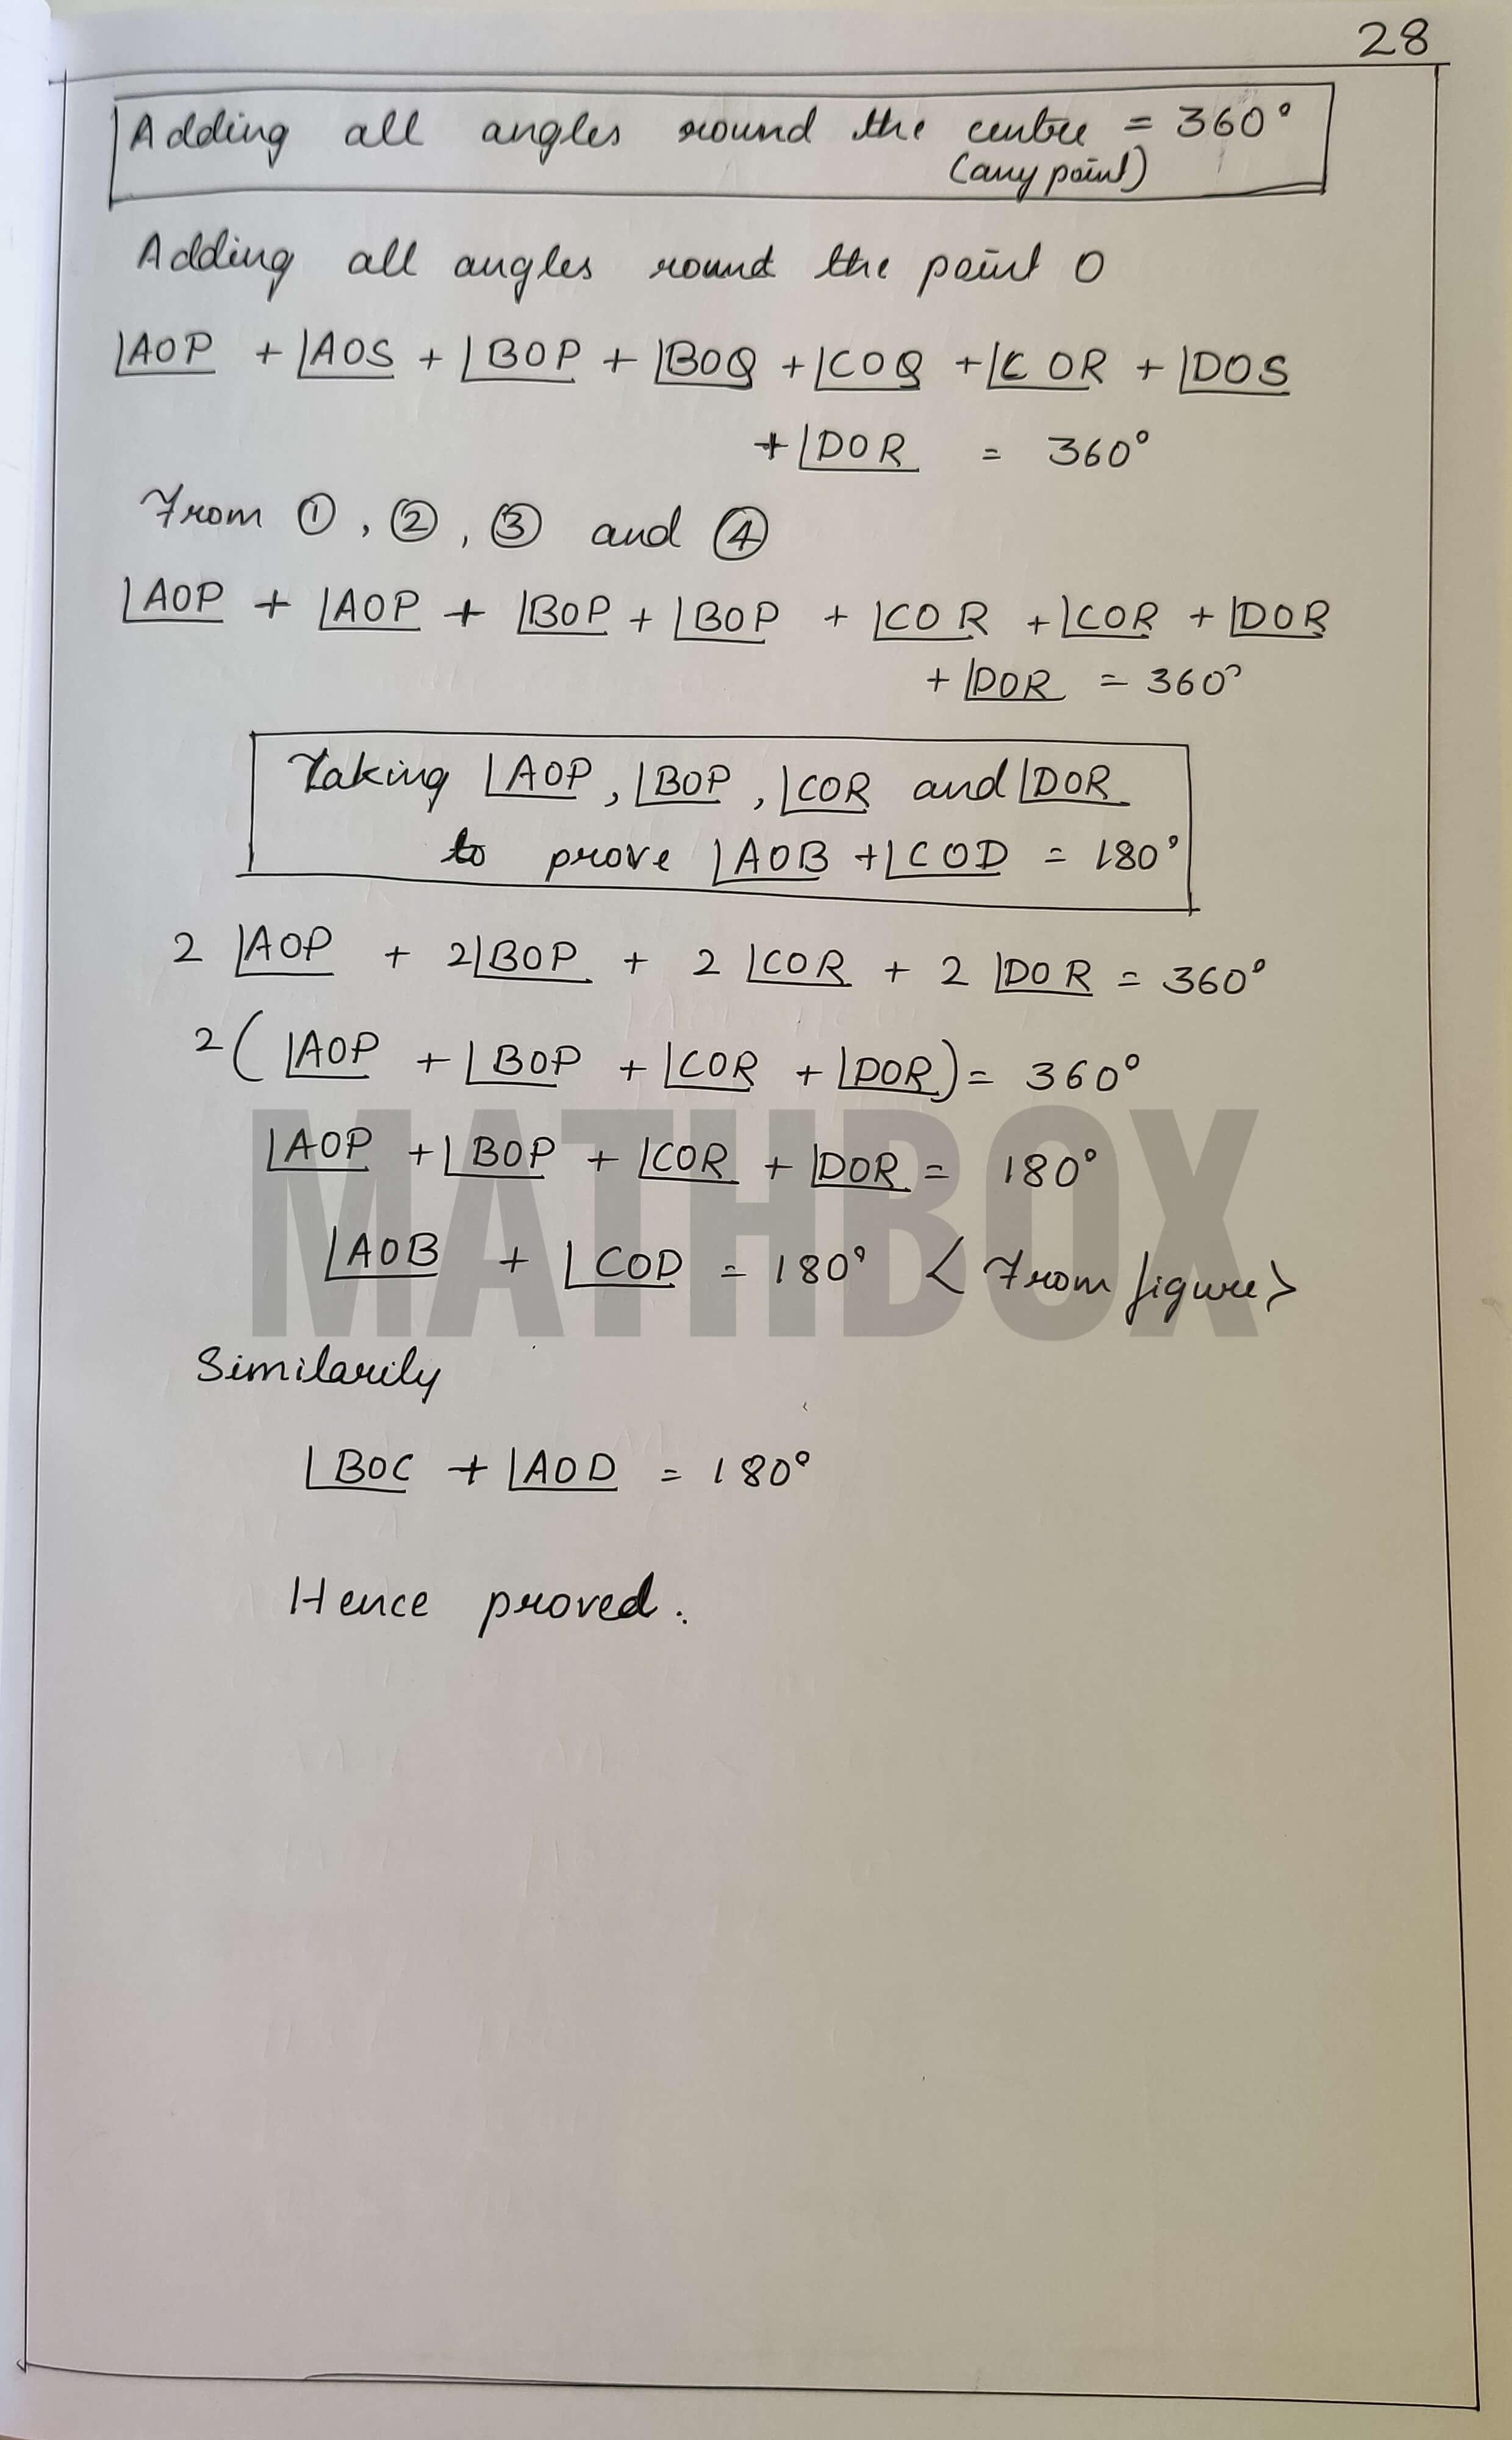 28
Adding all angles round the centre = 360°
(any point)
Adding all angles round the point O
∠AOP + ∠AOS + ∠BOP + ∠BOQ + ∠COQ + ∠COR + ∠DOS
+ ∠DOR = 360°
From ①, ②, ③ and ④
∠AOP + ∠AOP + ∠BOP + ∠BOP + ∠COR + ∠COR + ∠DOR
+ ∠DOR = 360°
Taking ∠AOP, ∠BOP, ∠COR and ∠DOR
to prove ∠AOB + ∠COD = 180°
2 ∠AOP + 2∠BOP + 2 ∠COR + 2 ∠DOR = 360°
2(∠AOP + ∠BOP + ∠COR + ∠DOR) = 360°
∠AOP + ∠BOP + ∠COR + ∠DOR = 180°
∠AOB + ∠COD = 180° < From figure >
MATHBOX
Similarily
∠BOC + ∠AOD = 180°
Hence proved.